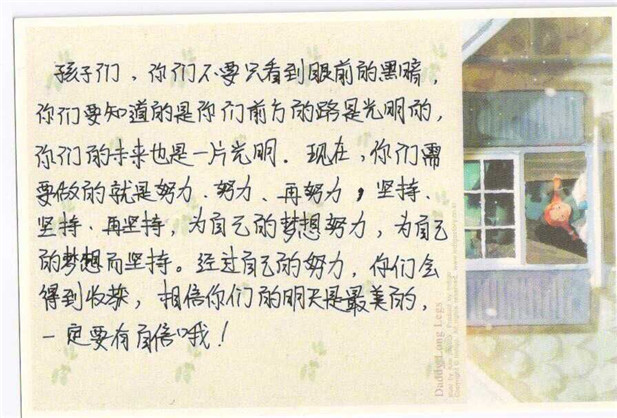 孩子们，你们不要只看到眼前的黑暗，
你们要知道的是你们前方的路是光明的，
你们的未来也是一片光明．现在，你们需
要做的就是努力、努力、再努力，坚持、
坚持、再坚持，为自己的梦想努力，为自己
的梦想而坚持。经过自己的努力，你们会
得到收获，相信你们的明天是最美的，
一定要有自信哦！
Daddy Long Legs